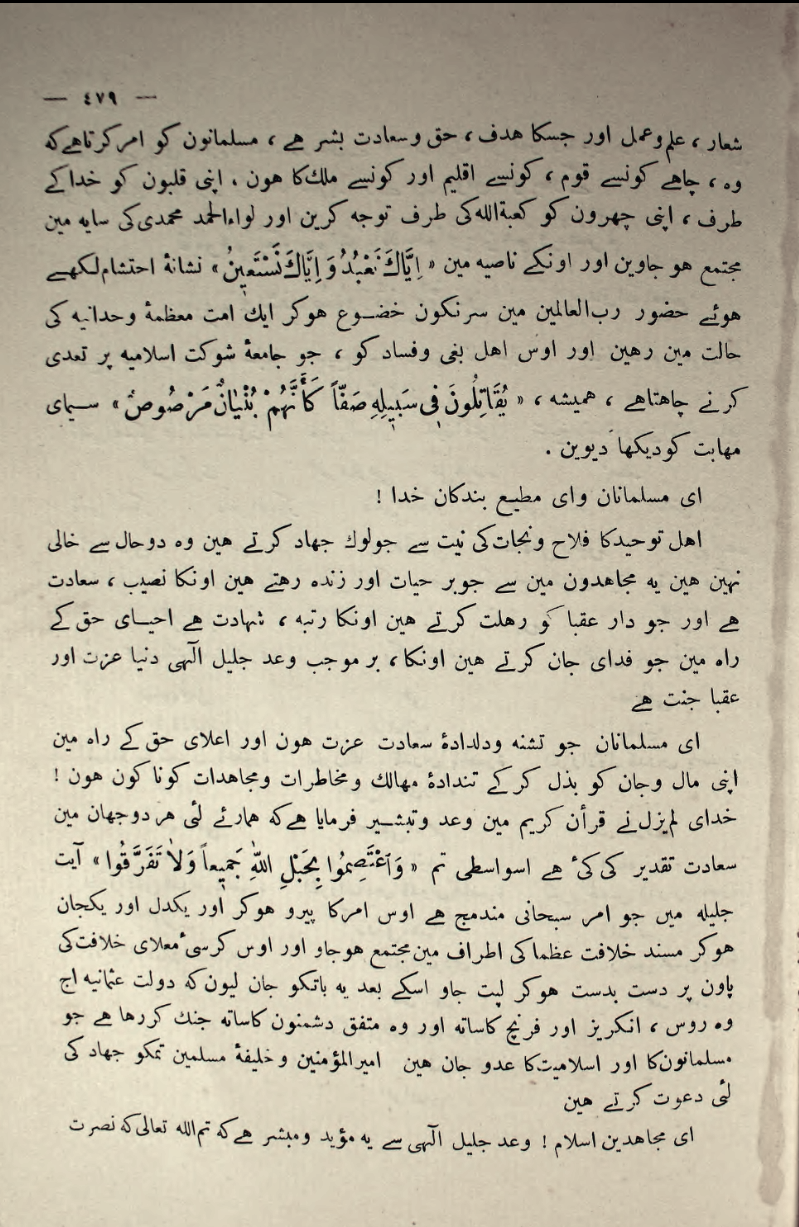 — ٤٧٩ —
شعار ، علم وعمل اور جسكا هدف ، حق وسعادت بشر هے ، مسلمانون كو امر كرتاهے كه
وه ، چاهے كونسے قوم ، كونسے اقليم اور كونسے ملك كا هون . اپنى قلبون كو خداكے
طرف ، اپنى چهرون كو كعبة الله كى طرف توجه كرين اور لواءالحمد محمدى كى سايه مين
مجتمع هو جاوين اور اونكے ناصيه مين « اِيَّاكَ نَعْبُدُ وَ اِيَّاكَ نَسْتَعِينُ » نشانۀ احتشام لكهے
هوئے حضور رب العالمين مين سرنكون خضوع هوكر ايك امت معظمۀ وحدانيه كى
حالت مين رهين اور اوس اهل بغى وفساد كو ، جو جامعۀ شوكت اسلاميه پر تعدى
كرنے چاهتاهے ، هميشه ، « يُقَاتِلُونَ فِى سَبِيلِهِ صَفّاً كَأَنَّهُمْ بُنْيَانٌ مَرْصُوصٌ » سيماى
مهابت كو ديكها ديوين .
اى مسلمانان واى مطيع بندكان خدا !
اهل توحيدكا فلاح ونجات كى نيت سے جولوك جهاد كرتے هين وه دوحال سے خالى
نهين هين يه مجاهدون مين سے جوبر حيات اور زنده رهتے هين اونكا نصيب ، سعادت
هے اور جو دار عقبا كو رهلت كرتے هين اونكا رتبه ، شهادت هے احياى حق كے
راه مين جو فداى جان كرتے هين اونكا ، بر موجب وعد جليل الٓهى دنيا عزت اور
عقبا جنت هے
اى مسلمانان جو تشنه ودلدادۀ سعادت عزت هون اور اعلاى حق كے راه مين
اپنى مال وجان كو بذل كركے تندادۀ مهالك ومخاطرات ومجاهدات كونا كون هون !
خداى لم يزل نے قرأن كريم مين وعد وتبشير فرمايا هے كه همارئے لئى هر دوجهان مين
سعادت تقدير كى كئى هے اسواسطى تم « وَاعْتَصِمُوا بِحَبْلِ اللّٰهِ جَمِيعاً وَلاٰ تَفَرَّقُوا » آيت
جليله ميں جو امر سبحانى مندمج هے اوس امركا پيرو هوكر اور يكدل اور يكجان
هوكر مسند خلافت عظماكى اطراف مين مجتمع هوجاو اور اوس كرسئ معلاى خلافت كى
پاون پر دست بدست هوكر لپت جاو اسكے بعد يه باتكو جان ليون كه دولت عثمانيه اج
وه روس ، انكريز اور فرنچ كاساته اور وه متفق دشمنون كاساته جنك كررها هے جو
مسلمانون كا اور اسلاميت كا عدو جان هين اميرالمؤمنين وخليفۀ مسلمين تمكو جهاد كى
لئى دعوت كرتے هين
اى مجاهدين اسلام ! وعد جليل الٓهى سے يه مؤيد ومبشر هے كه تم الله تعالى كه نصرت